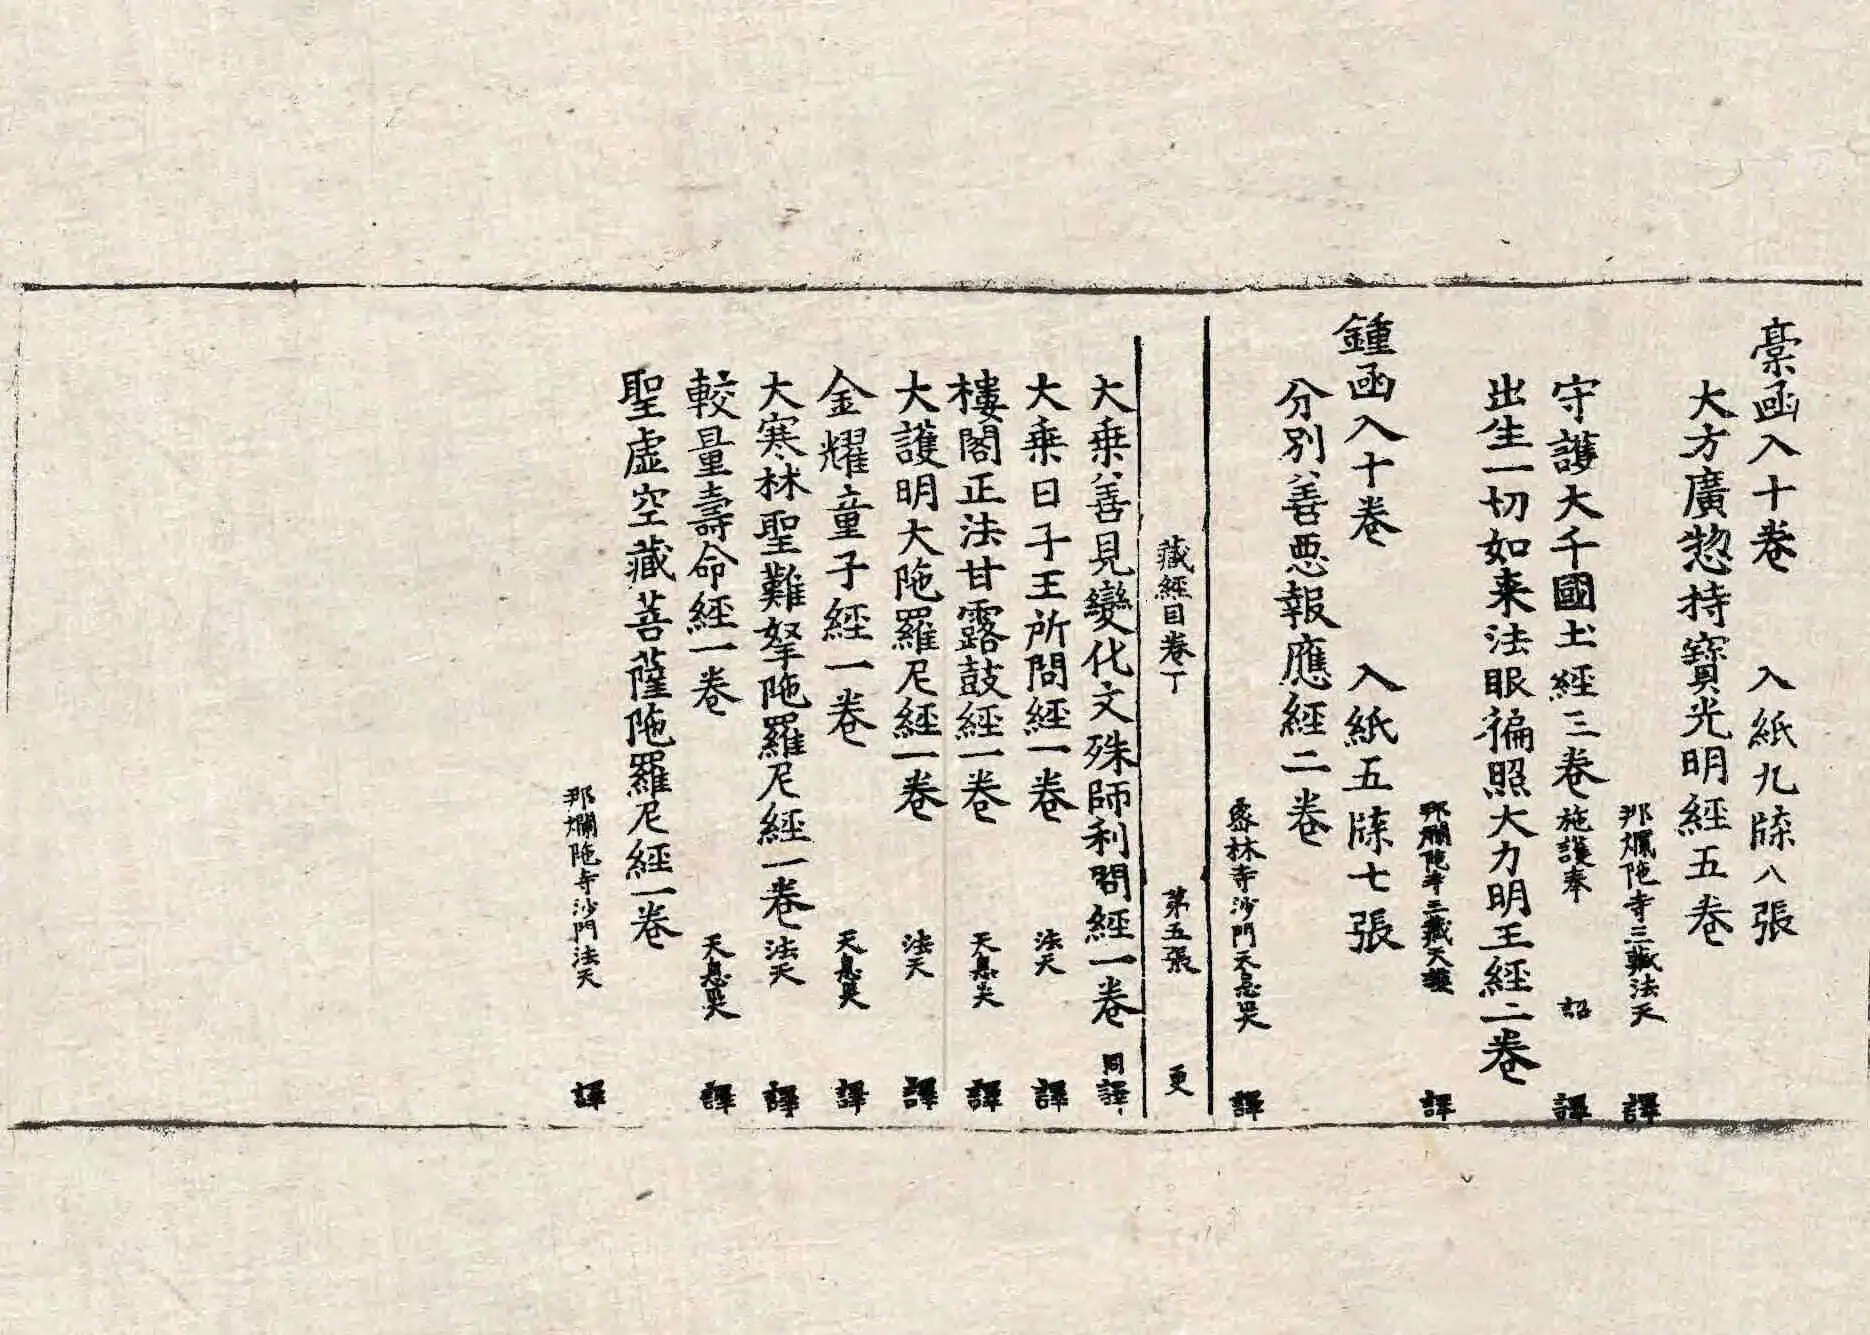 槀函入十卷 入紙九牒八張
大方廣惣持寶光明經五卷
那爛陁寺三藏法天 譯
守護大千國土經三卷 施護奉 詔 譯
出生一切如来法眼徧照大力明王經二卷
那爛陁寺三藏天護 譯
鍾函入十卷 入紙五牒七張
分別善惡報應經二卷
宻林寺沙門天息災 譯
藏經目卷丁 第五張 更
大乗善見變化文殊師利問經一卷 同譯
大乗日子王所問經一卷 法天 譯
樓閣正法甘露鼓經一卷 天息災 譯
大護明大陁羅尼經一卷 法天 譯
金耀童子經一卷 天息災 譯
大寒林聖難拏陁羅尼經一卷 法天 譯
較量壽命經一卷 天息災 譯
聖虚空藏菩薩陁羅尼經一卷
那爛陁寺沙門法天 譯